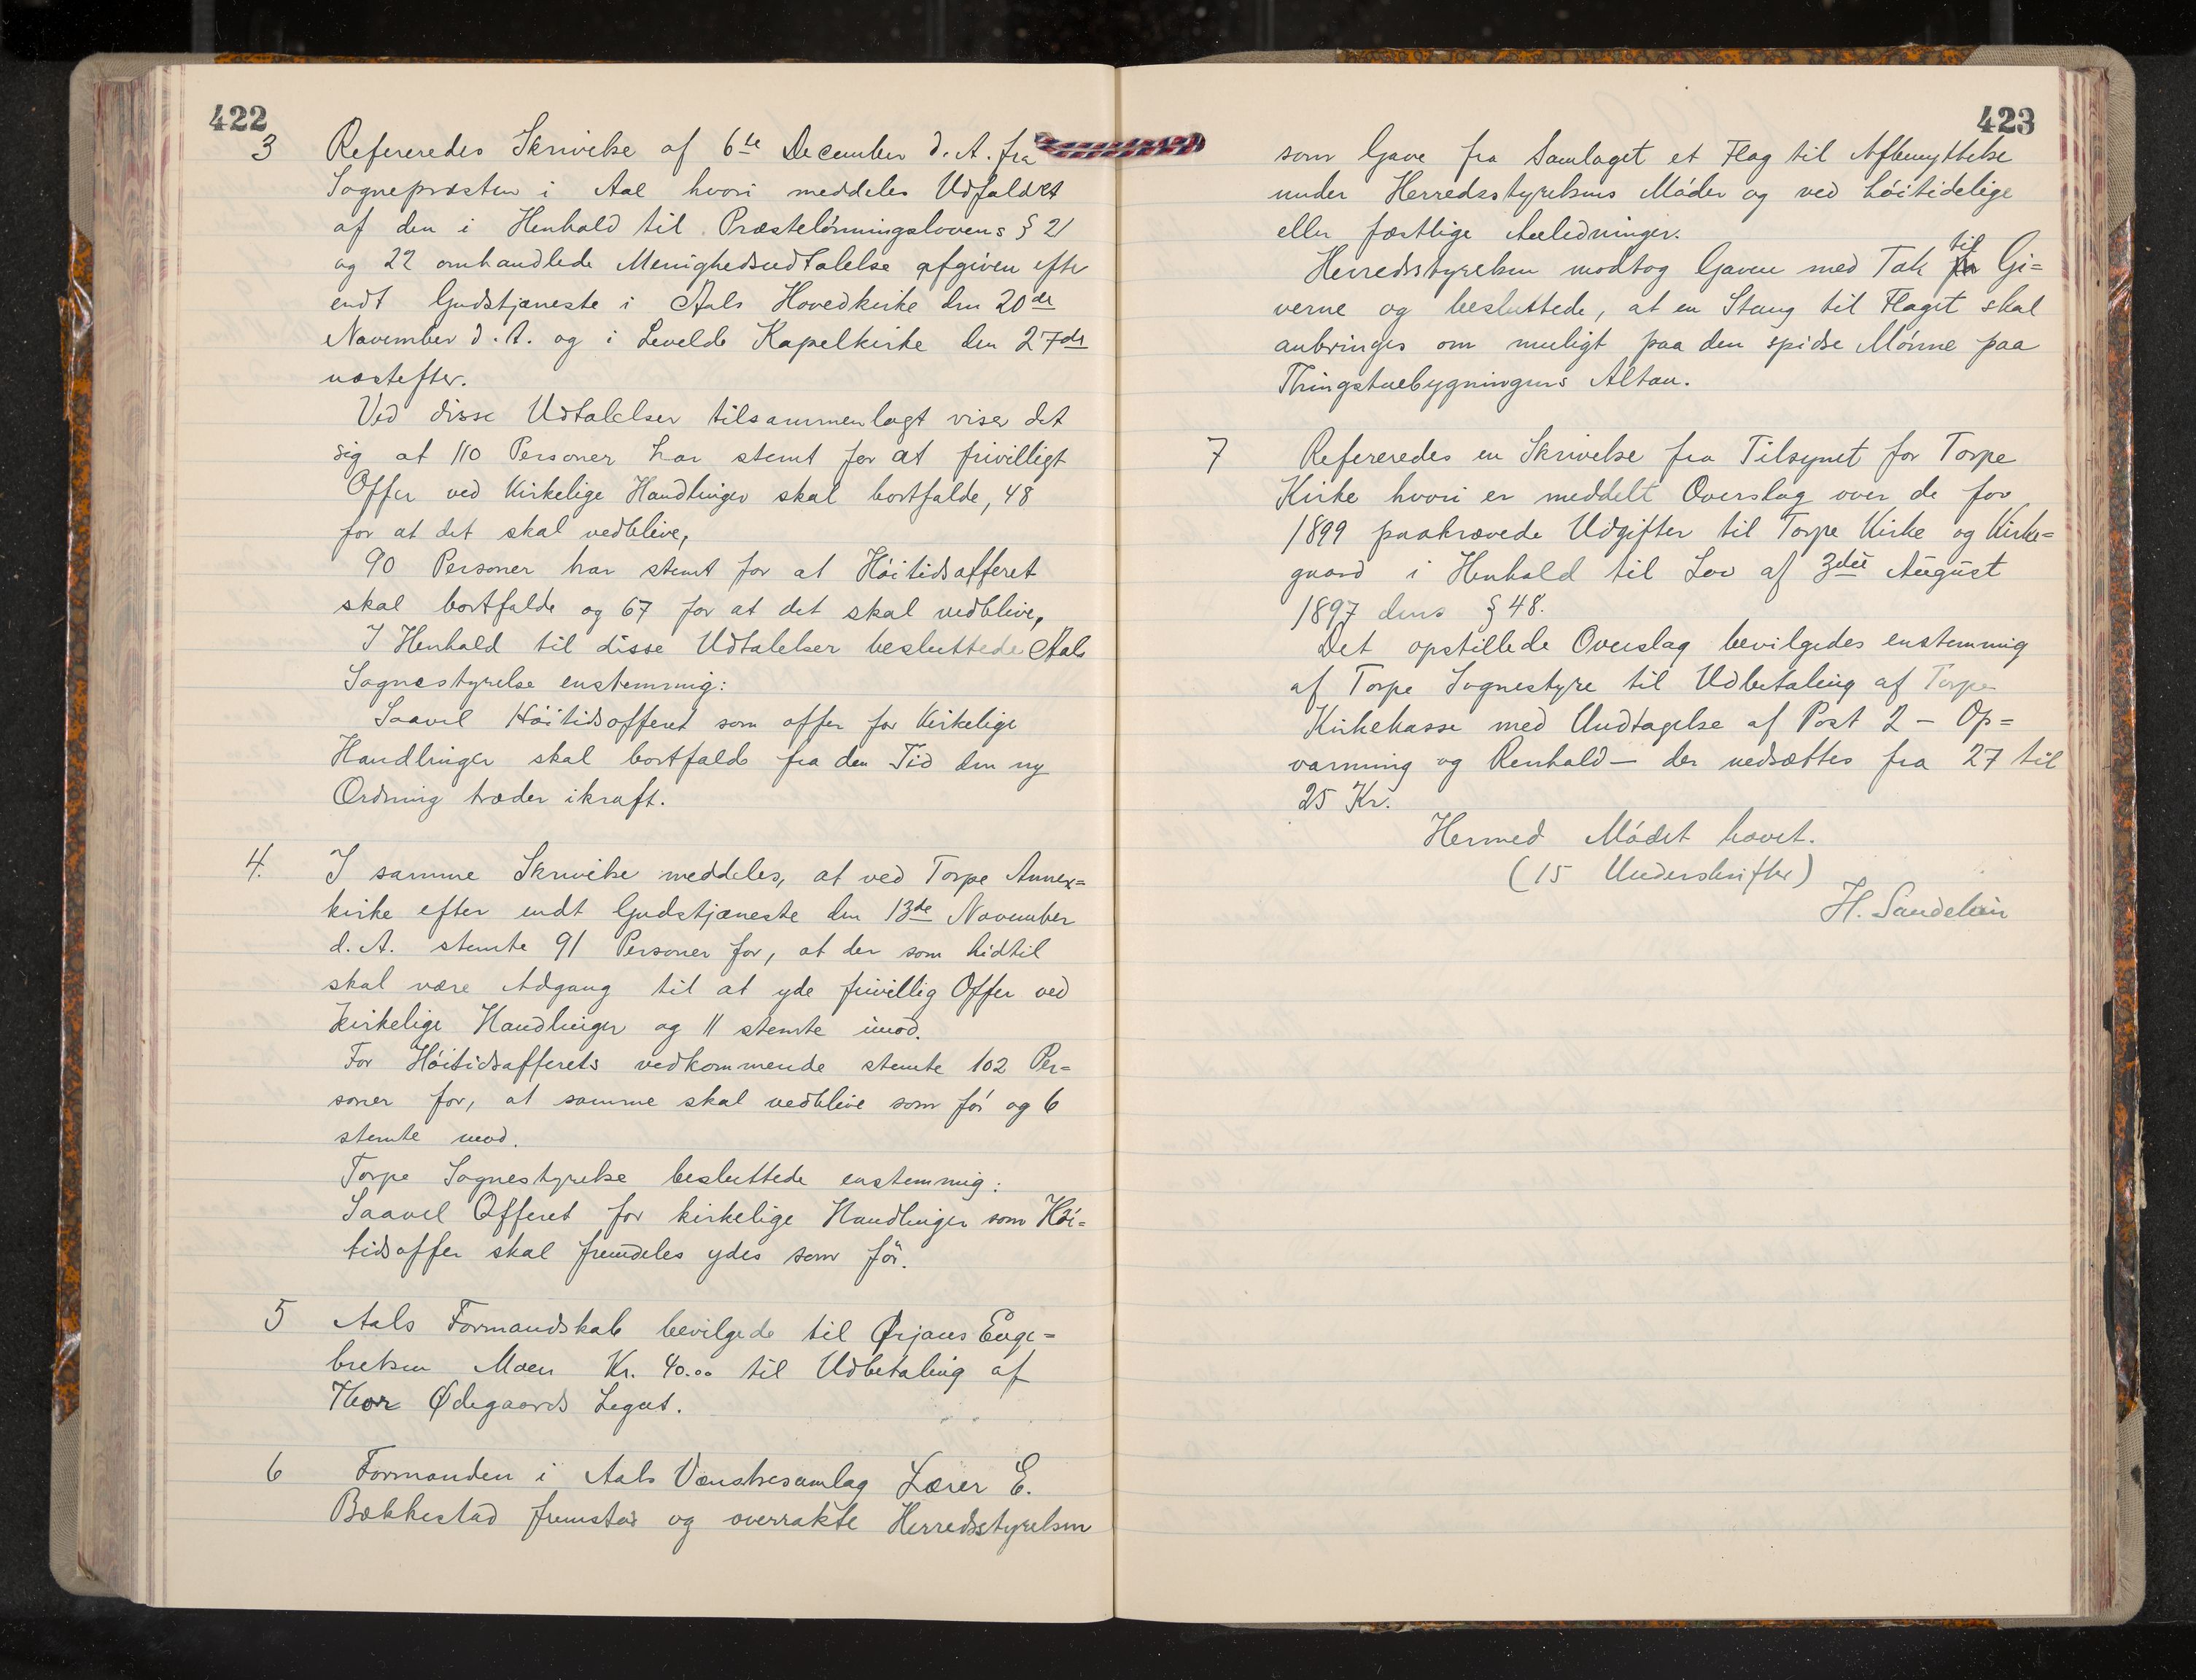 422
3 Refereredes Skrivelse af 6te December d. A. fra
Sognepræsten i Aal hvori meddeles Udfaldet
af den i Henhold til Præstelönningslovens § 21
og 22 omhandlede Menighedsudtalelse afgiven efter
endt Gudstjæneste i Aals Hovedkirke den 20de
November d. A. og i Leveld Kapelkirke den 27de
næstefter.
Ved disse Udtalelser tilsammenlagt viser det
sig at 110 Personer har stemt for at frivilligt
Offer ved Kirkelige Handlinger skal bortfalde, 48
for at det skal vedblive,
90 Personer har stemt for at Höitidsofferet
skal bortfalde og 67 for at det skal vedblive,
I Henhold til disse Udtalelser besluttede Aals
Sognestyrelse enstemmig:
Saavel Höitidsofferet som offer for Kirkelige
Handlinger skal bortfalde fra den Tid den ny
Ordning træder ikraft.
4. I samme Skrivelse meddeles, at ved Torpe Annex=
kirke efter endt Gudstjæneste den 13de November
d. A. stemte 91 Personer for, at der som hidtil
skal være Adgang til at yde frivillig Offer ved
kirkelige Handlinger og 11 stemte imod.
For Höitidsofferets vedkommende stemte 102 Per=
soner for, at samme skal vedblive som för og 6
stemte imod.
Torpe Sognestyrelse besluttede enstemmig:
Saavel Offeret for kirkelige Handlinger som Höi=
tidsoffer skal fremdeles ydes som för.
5 Aals Formandskab bevilgede til Ørjans Enge=
bretsen Moen Kr. 40.00 til Udbetaling af
Thor Ødegaards Legat.
6 Formanden i Aals Venstresamlag Lærer E.
Bækkestad fremstod og overrakte Herredsstyrelsen
423
som Gave fra Samlaget et Flag til Afbenyttelse
under Herredsstyrelsens Möder og ved höitidelige
eller festlige Anledninger.
Herredsstyrelsen modtog Gaven med Tak til Gi=
verne og besluttede, at en Stang til Flaget skal
anbringes om muligt paa den spidse Mönne paa
Thingstuebygningens Altan.
7 Refereredes en Skrivelse fra Tilsynet for Torpe
Kirke hvori er meddelt Overslag over de for
1899 paakrævede Udgifter til Torpe Kirke og Kirke=
gaard i Henhold til Lov af 3die August
1897 dens § 48.
Det opstillede Overslag bevilgedes enstemmig
af Torpe Sognestyre til Udbetaling af Torpe
Kirkekasse med Undtagelse af Post 2 – Op=
varmning og Renhold – der nedsættes fra 27 til
25 Kr.
Hermed Mödet hævet.
(15 Underskrifter)
H. Sandelein